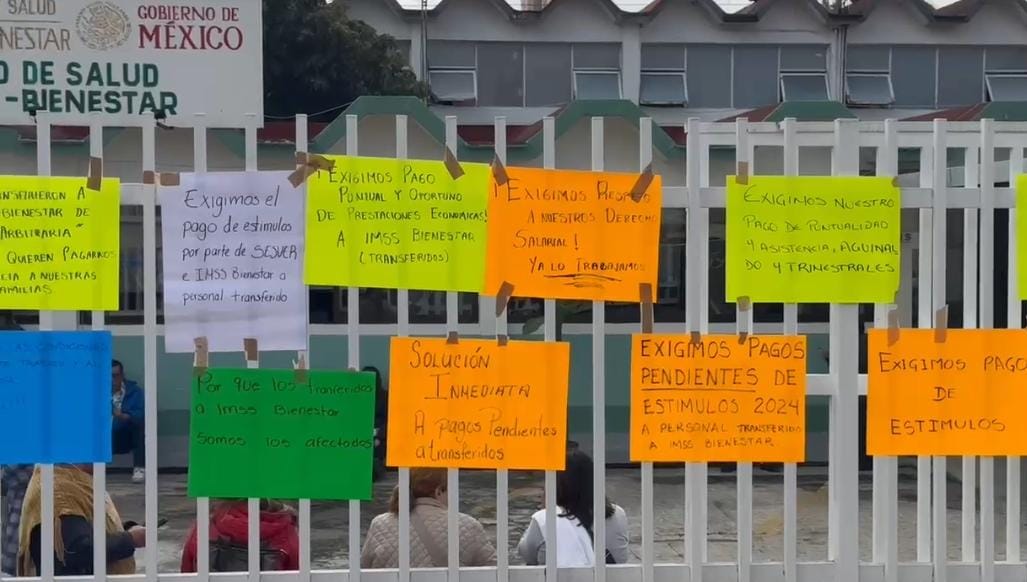 SALUD
NESTAR
GOBIERNO DE
MÉXICO
O DE SALUD
-BIENESTAR
NSFIRIERON A
BIENESTAR DE
ARBITRARIA"
QUIEREN PAGARNOS
CIA A NUESTRAS
AMILIAS.
Exigimos el
pago de estimulos
por parte de SESVER
e IMSS Bienestar a
personal transferido
¡EXIGIMOS PAGO
PUNTUAL Y OPORTUNO
DE PRESTACIONES ECONOMICAS!
A IMSS BIENESTAR
(TRANSFERIDOS)
¡EXIGIMOS RESPETO
A NUESTROS DERECHO
SALARIAL!
YA LO TRABAJAMOS
EXIGIMOS NUESTRO
PAGO DE PUNTUALIDAD
Y ASISTENCIA, AGUINAL
DO Y TRINESTRALES
LAS CONDICIONES
Por que los tranferidos
a Imss Bienestar
Somos los afectados
SOLUCIÓN
INMEDIATA
A pagos Pendientes
a transferidos
EXIGIMOS PAGOS
PENDIENTES DE
ESTIMULOS 2024
A PERSONAL TRANSFERIDO
A IMSS BIENESTAR
EXIGIMOS PAGO
DE
ESTIMULOS